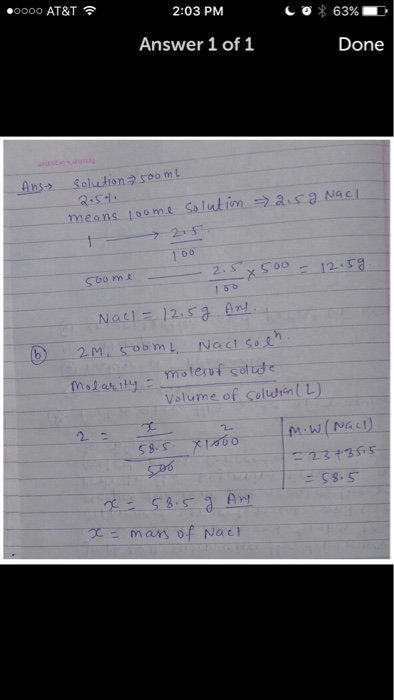 AT&T 2:03 PM 63%
Answer 1 of 1 Done
Ans→ Solution ⇒ 500mL
2.5%.
means 100me Solution ⇒ 2.5g Nacl
1 → 2.5
100
500me — 2.5 × 500 = 12.5g.
100
Nacl = 12.5g Ans.
(b) 2M, 500mL, Nacl solⁿ.
Molarity = moles of solute
Volume of solution (L)
2 = x
58.5 × 1000 2
500
M.W (Nacl)
= 23+35.5
= 58.5
x = 58.5 g Ans
x = mass of Nacl